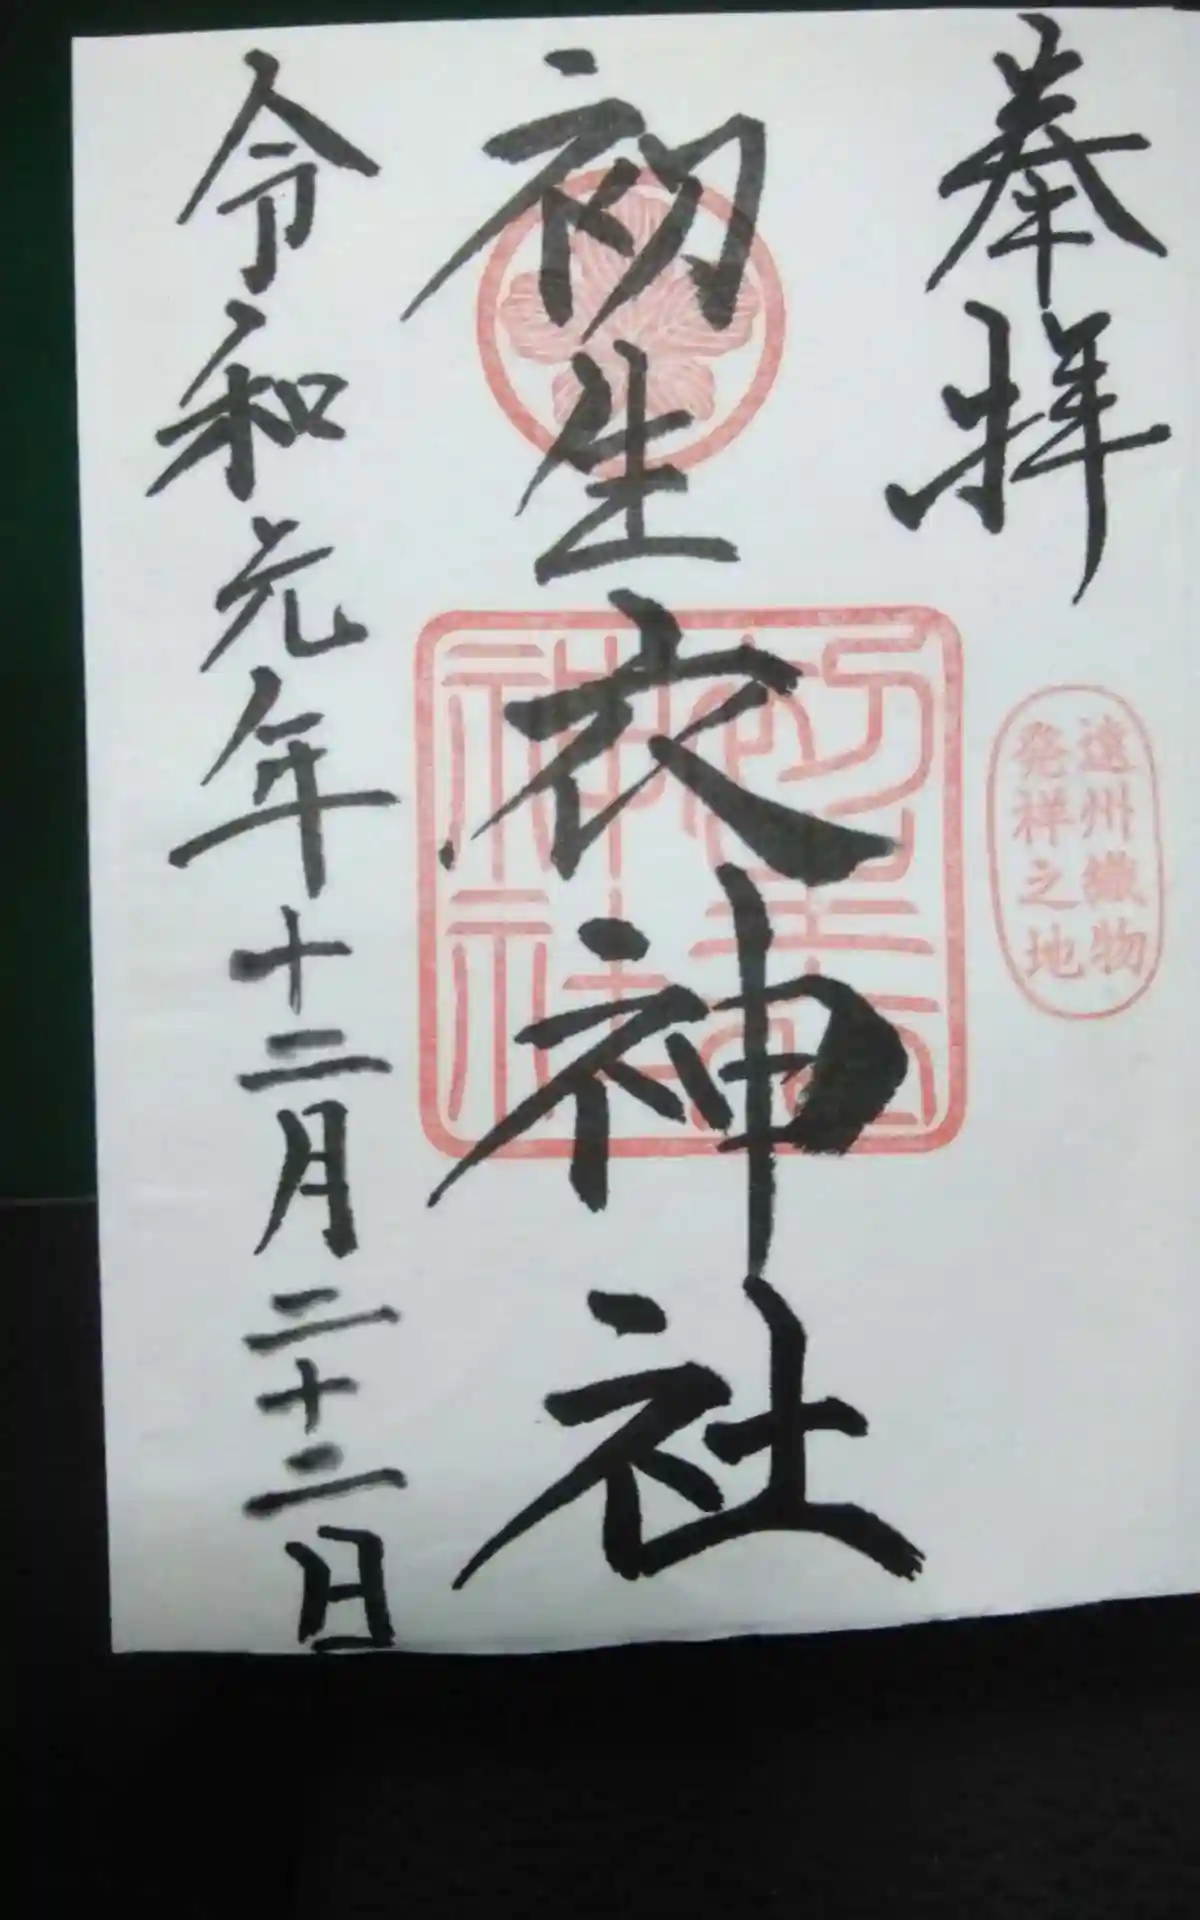 奉拝
遠州織物
発祥之地
初生衣神社
初生衣
神社
令和元年十二月二十二日